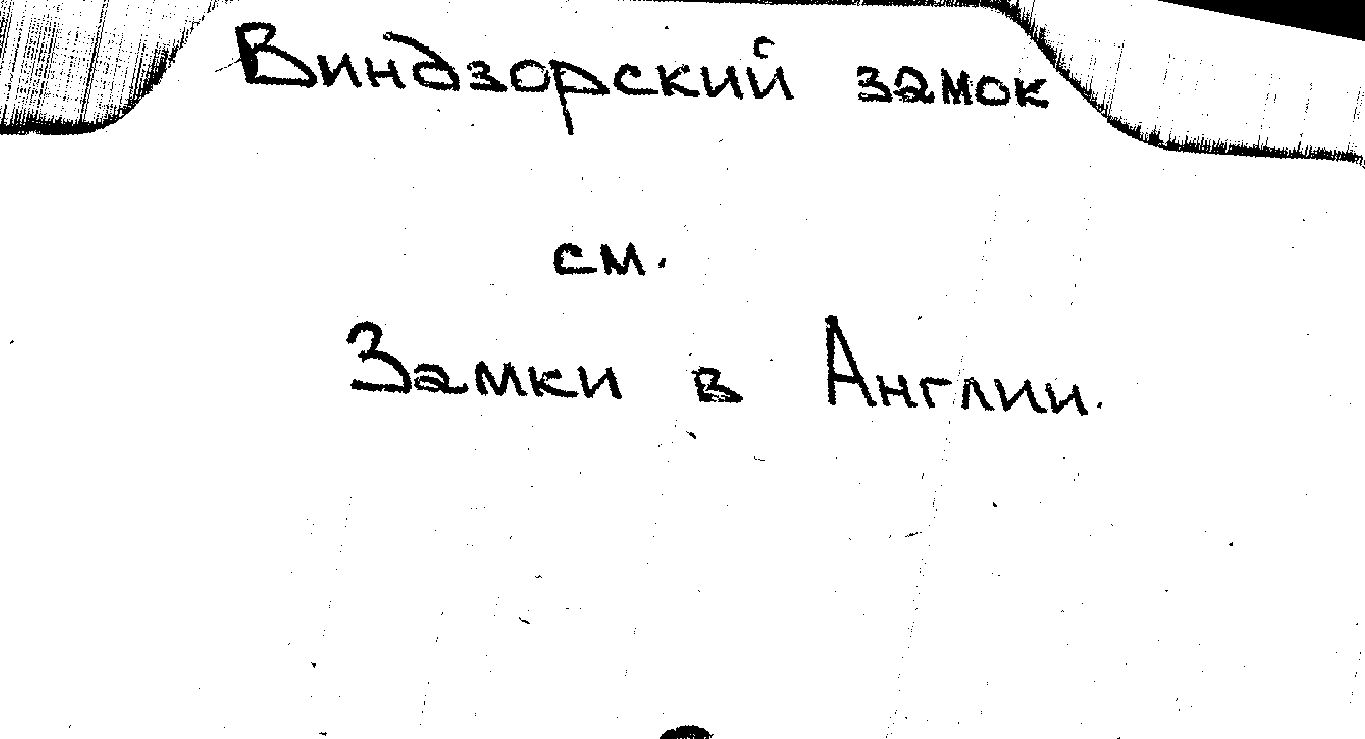 Виндзорский замок
см.
Замки в Англии.